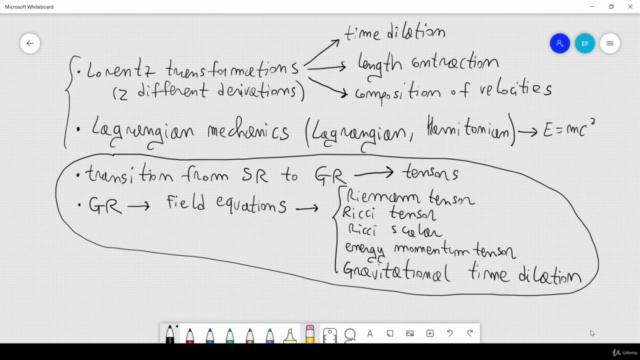 Microsoft Whiteboard
EP
time dilation
• Lorentz transformations → length contraction
(2 different derivations)
composition of velocities
• Lagrangian mechanics (Lagrangian, Hamiltonian) → E=mc²
• transition from SR to GR → tensors
• GR → Field equations → Riemann tensor
Ricci tensor
Ricci scalar
energy momentum tensor
Gravitational time dilation
A
Udemy